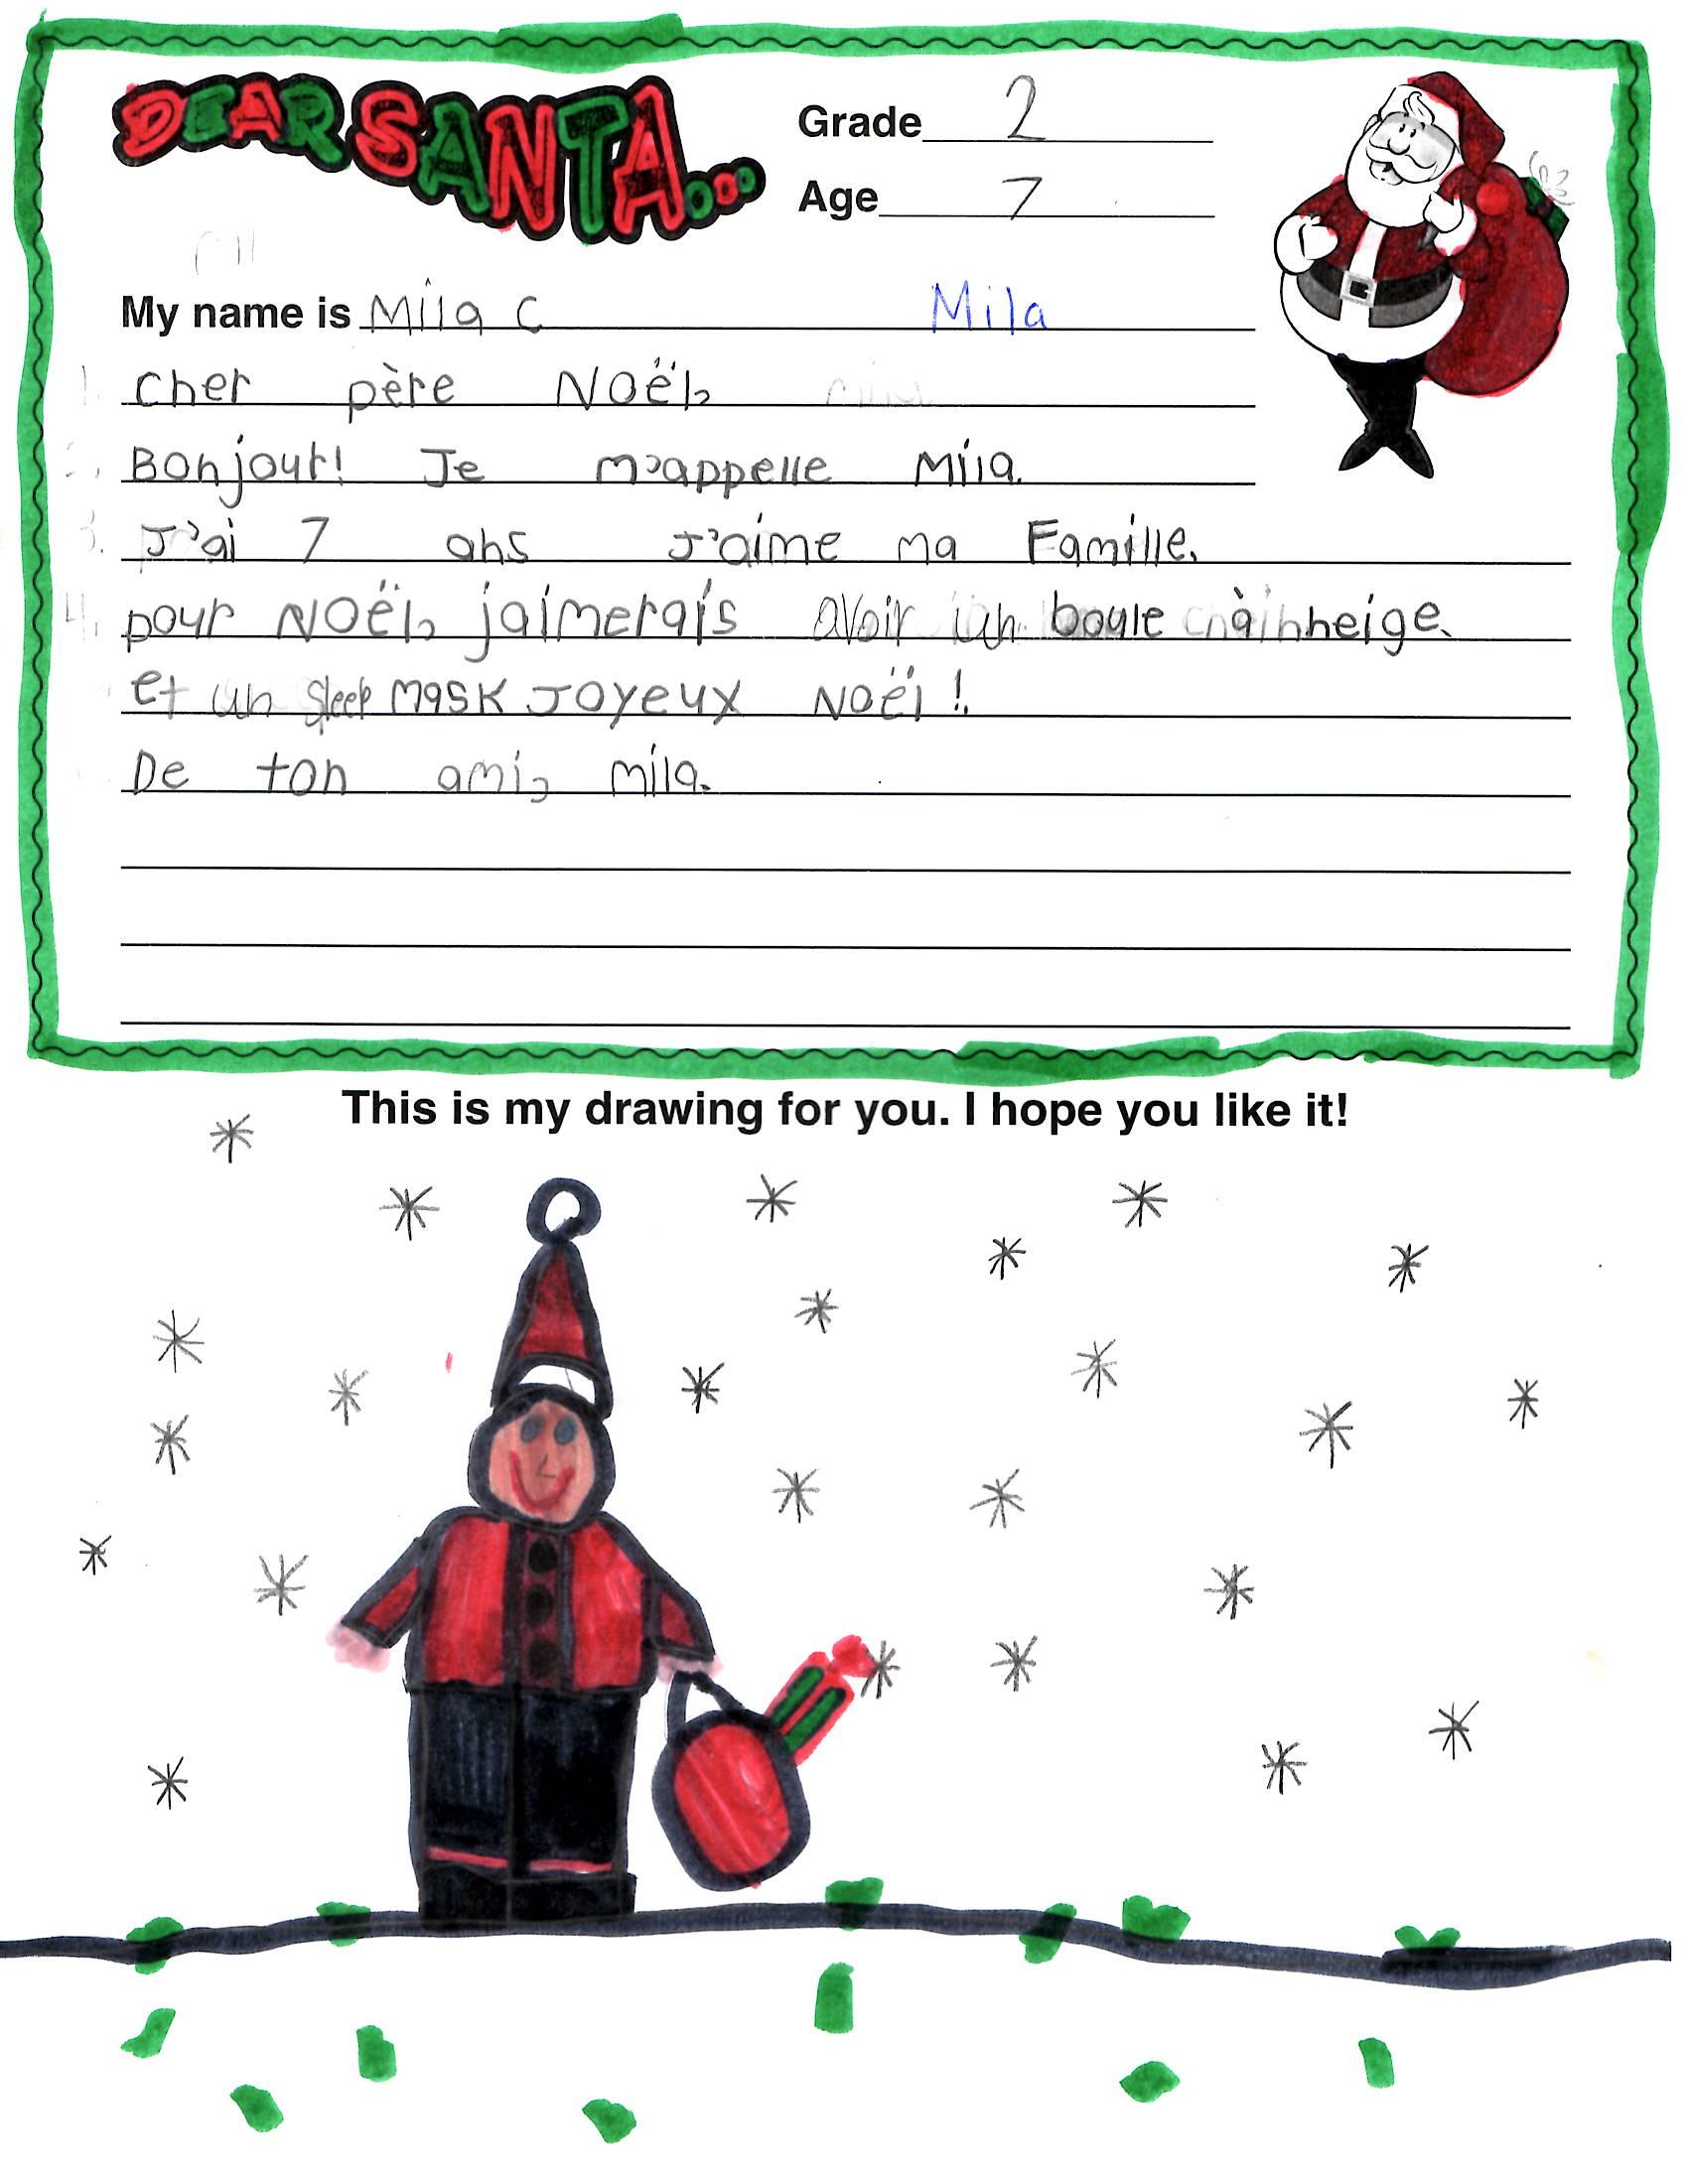 DEAR SANTA...
Grade 2
Age 7
My name is Mila C Mila
1. cher père NOël,
2. Bonjour! Je m'appelle Mila.
3. J'ai 7 ans J'aime ma Famille.
4. pour NOël, jaimerais avoir un boule à neige.
et un sleep mask JOYEUX NOël !
De ton ami, mila.
This is my drawing for you. I hope you like it!